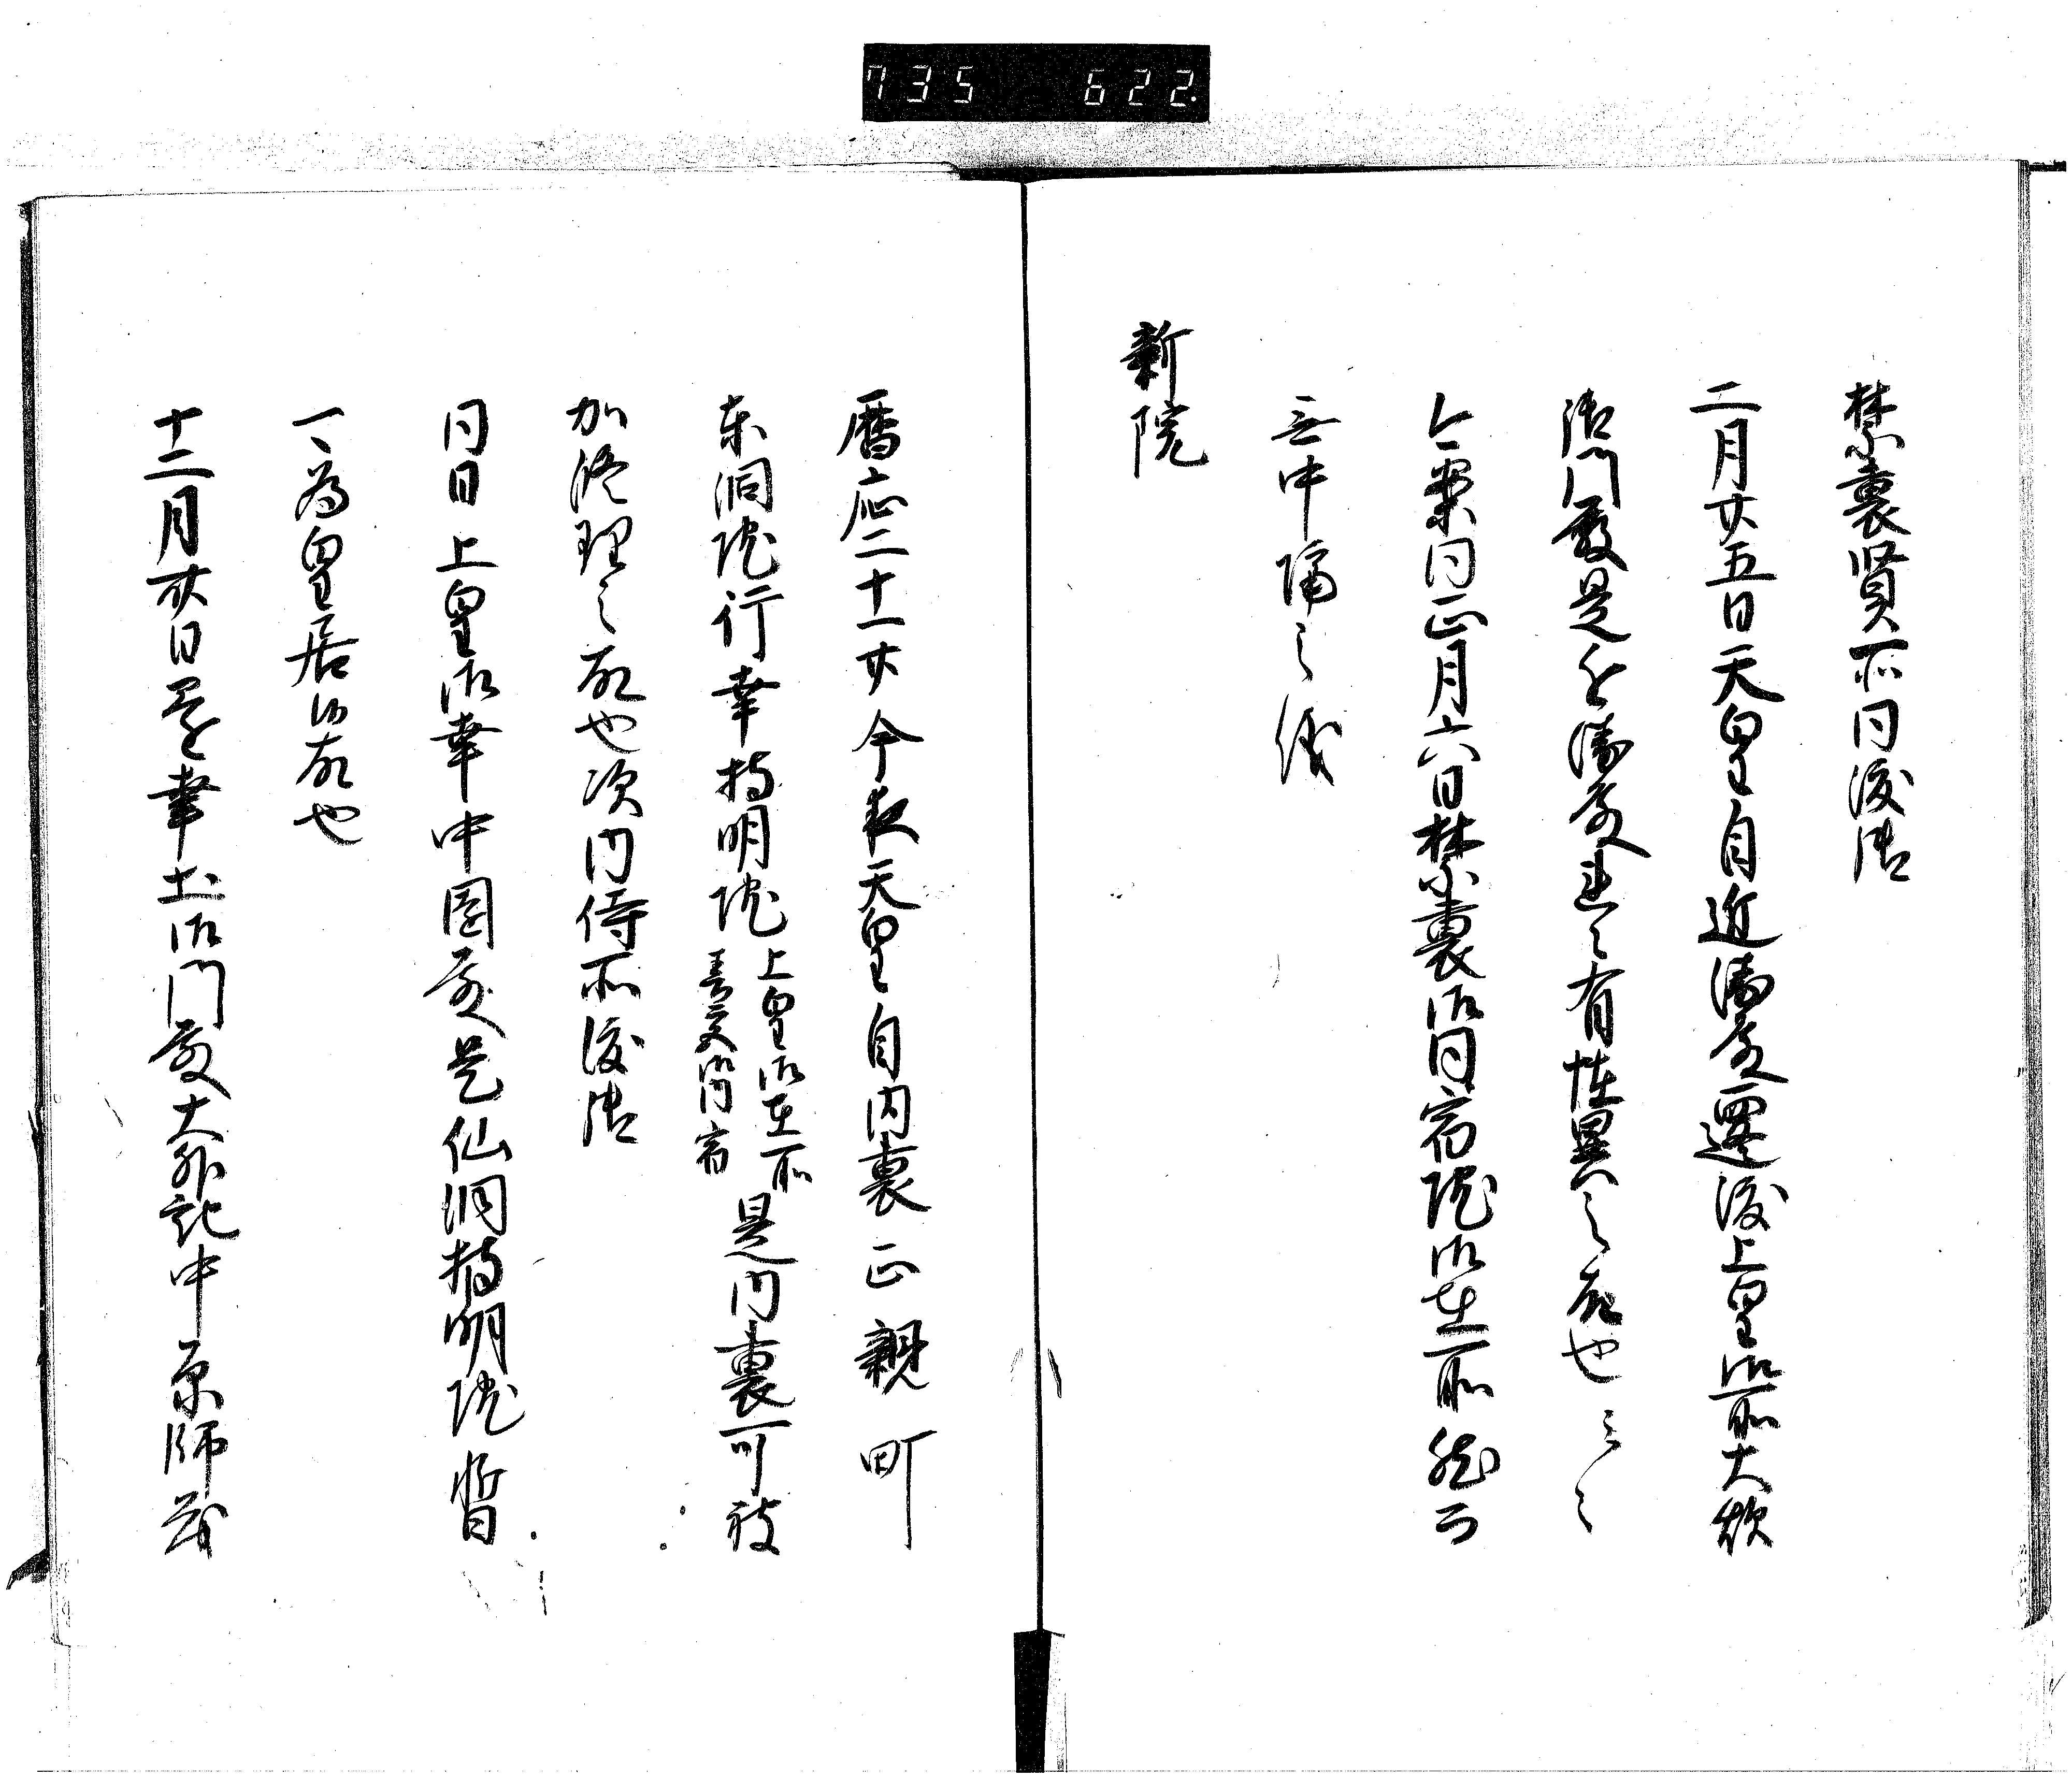 735 622
禁裏賢所同渡御
二月廿五日天皇自近衛殿遷渡上皇御所大炊
御門殿是近衛殿連々有怪異之故也云々
今案同正月六日禁裏御同宿院御在所然而
無中隔之儀
新院
暦応二十一廿今夜天皇自内裏正親町
東洞院行幸持明院上皇御在所
御同宿是内裏可被
加修理之故也次内侍所渡御
同日上皇御幸中園殿是仙洞持明院暫
為皇居故也
十二月廿日還幸土御門殿大外記中原師茂